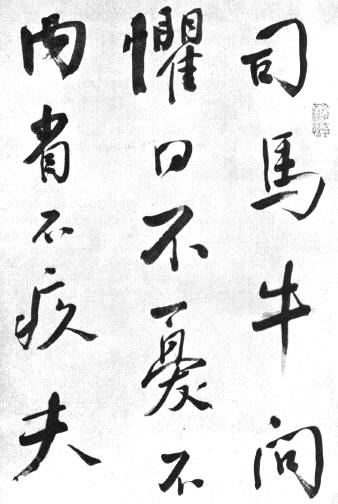 司馬牛問
懼曰不憂不
内省不疚夫